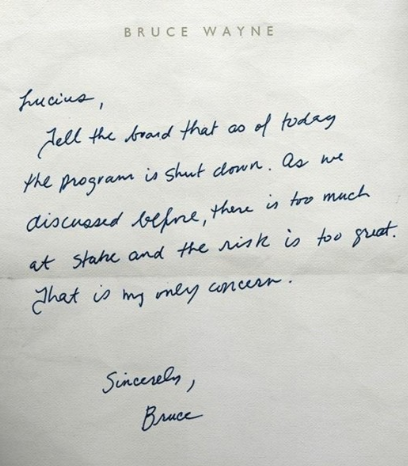 BRUCE WAYNE
Lucius,
Tell the board that as of today
the program is shut down. As we
discussed before, there is too much
at stake and the risk is too great.
That is my only concern.
Sincerely,
Bruce